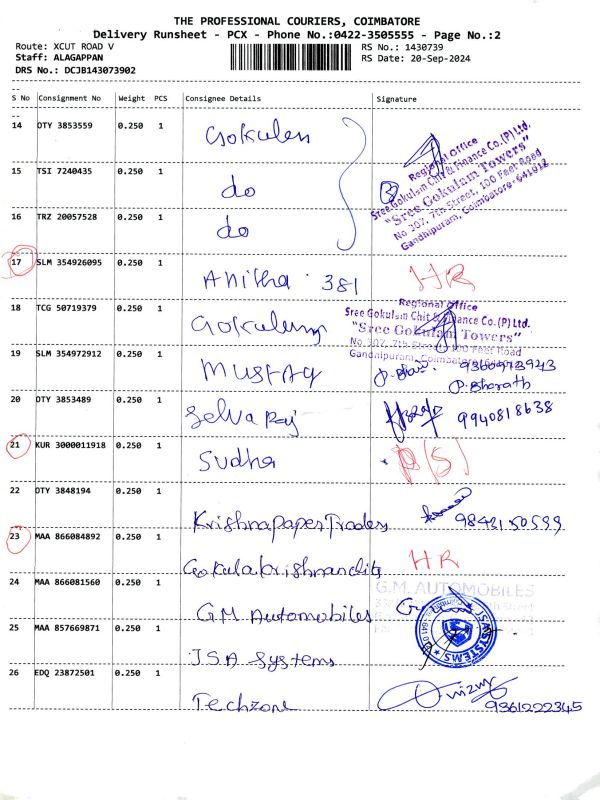 THE PROFESSIONAL COURIERS, COIMBATORE
Delivery Runsheet - PCX - Phone No.:0422-3505555 - Page No.:2
Route: XCUT ROAD V RS No.: 1430739
Staff: ALAGAPPAN RS Date: 20-Sep-2024
DRS No.: DCJB143073902
S No Consignment No Weight PCS Consignee Details Signature
14 OTY 3853559 0.250 1 Gokulam
15 TSI 7240435 0.250 1 do
16 TRZ 20057528 0.250 1 do
Regional Office
Sree Gokulam Chit & Finance Co.(P) Ltd.
"Sree Gokulam Towers"
No 307, 7th Street, 100 Feet Road
Gandhipuram, Coimbatore-641012
17 SLM 354926095 0.250 1 Anitha 381 HR
18 TCG 50719379 0.250 1 Gokulam
Regional Office
Sree Gokulam Chit & Finance Co.(P) Ltd.
"Sree Gokulam Towers"
No.307, 7th Street, 100 Feet Road
Gandhipuram, Coimbatore
19 SLM 354972912 0.250 1 Mustaq 9360973943
P. Bharath
20 OTY 3853489 0.250 1 Selva Raj 9940818638
21 KUR 3000011918 0.250 1 Sudha
22 OTY 3848194 0.250 1 Krishna paper Traders
23 MAA 866084892 0.250 1 HR
24 MAA 866081560 0.250 1 G.M Automobiles G.M. AUTOMOBILES
25 MAA 857669871 0.250 1 JSA Systems JSA SYSTEMS
26 EDQ 23872501 0.250 1 Techzone 9361222345